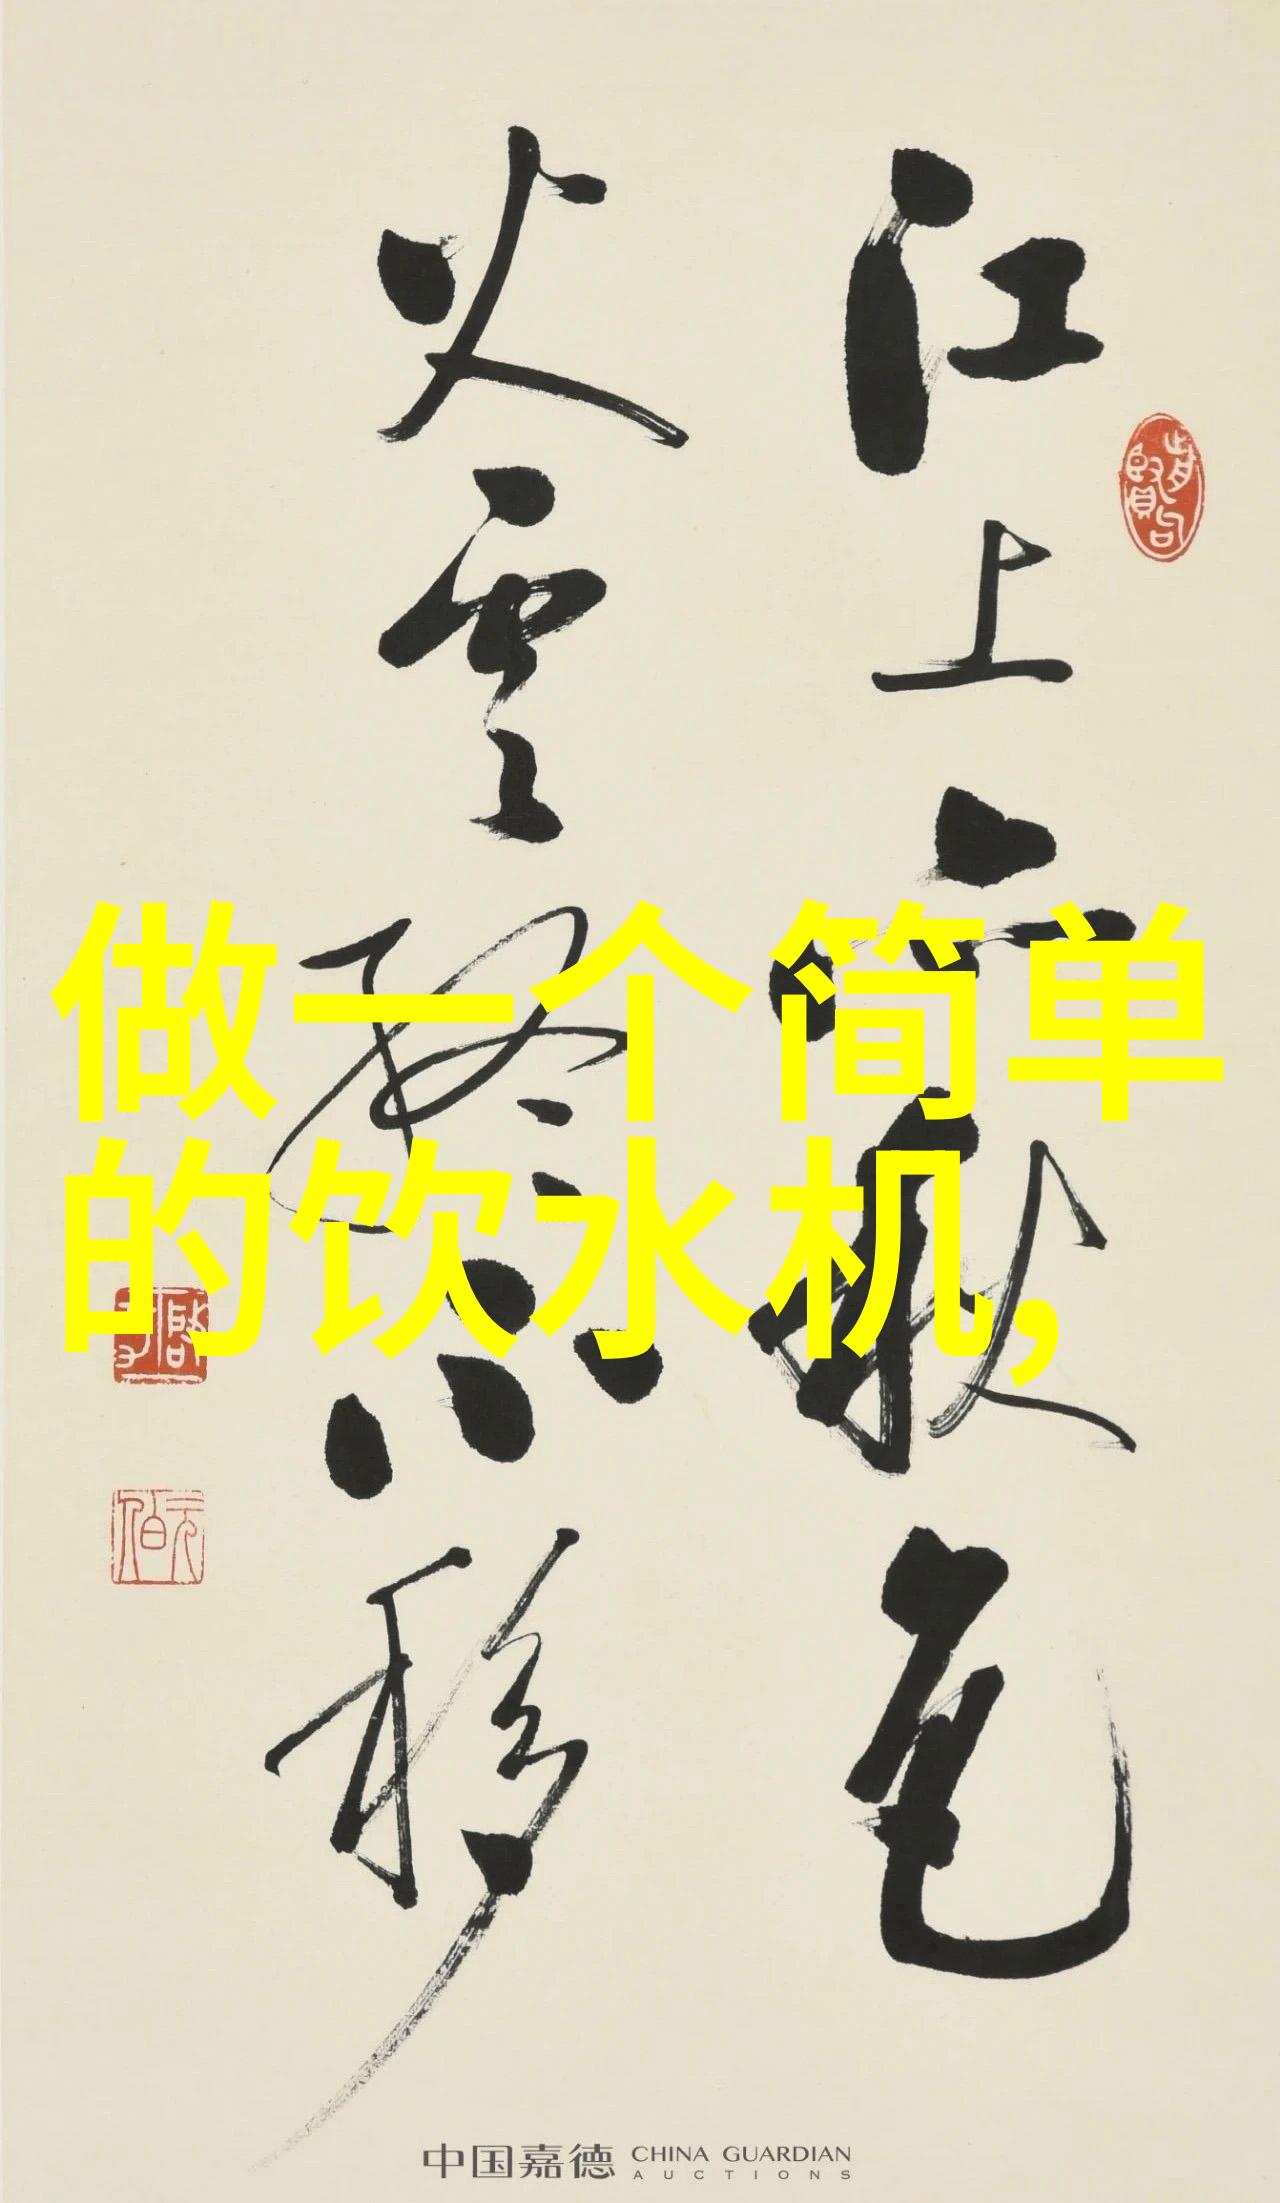 江上亦秋色
火雲終不移
做一个简单
的饮水机,
中国嘉德 CHINA GUARDIAN
AUCTIONS